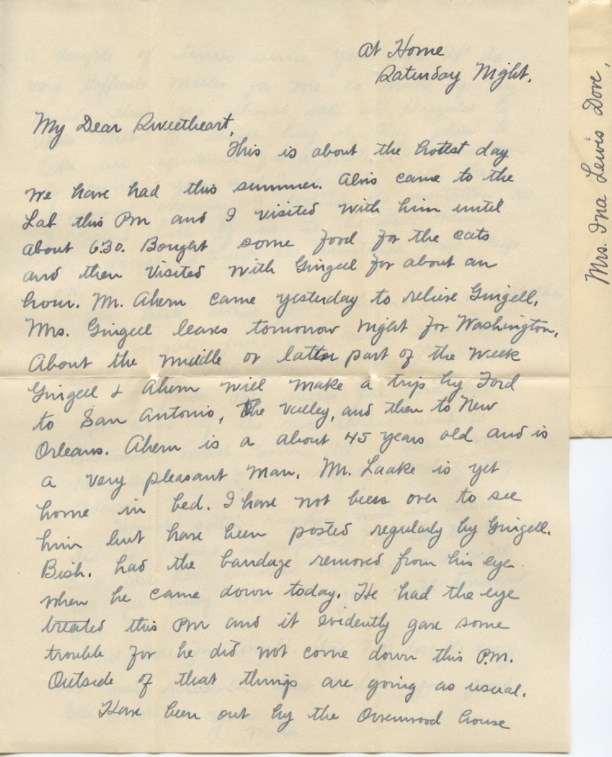 At Home
Saturday Night.
My Dear Sweetheart,
This is about the hotest day
we have had this summer. Alvis came to the
Lab this Pm and I visited with him until
about 6:30. Bought some food for the cats
and then visited with Gingell for about an
hour. Mr. Ahern came yesterday to relieve Gingell.
Mrs. Gingell leaves tomorrow night for Washington.
About the middle or latter part of the week
Gingell & Ahern will make a trip by Ford
to San Antonio, the valley, and then to New
Orleans. Ahern is a about 45 years old and is
a very pleasant man. Mr. Laake is yet
home in bed. I have not been over to see
him but have been posted regularly by Gingell.
Bish. had the bandage removed from his eye
when he came down today. He had the eye
treated this Pm and it evidently gave some
trouble for he did not come down this P.M.
Outside of that things are going as usual.
Have been out by the house
Mrs. Ina Lewis Dove,